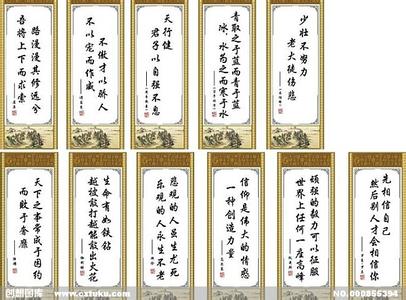 路漫漫其修远兮
吾将上下而求索
不傲才以骄人
不以宠而作威
天行健
君子以自强不息
青取之于蓝而青于蓝
冰，水为之而寒于水
少壮不努力
老大徒伤悲
天下之事常成于困约
而败于奢靡
生命有如铁砧
越被敲打越能击出火花
悲观的人虽生尤死
乐观的人永生不老
信仰是伟大的情感
一种创造力量
顽强的毅力可以征服
世界上任何一座高峰
先相信自己
然后别人才会相信你
创想图库 www.cxtuku.com
编号:000855394